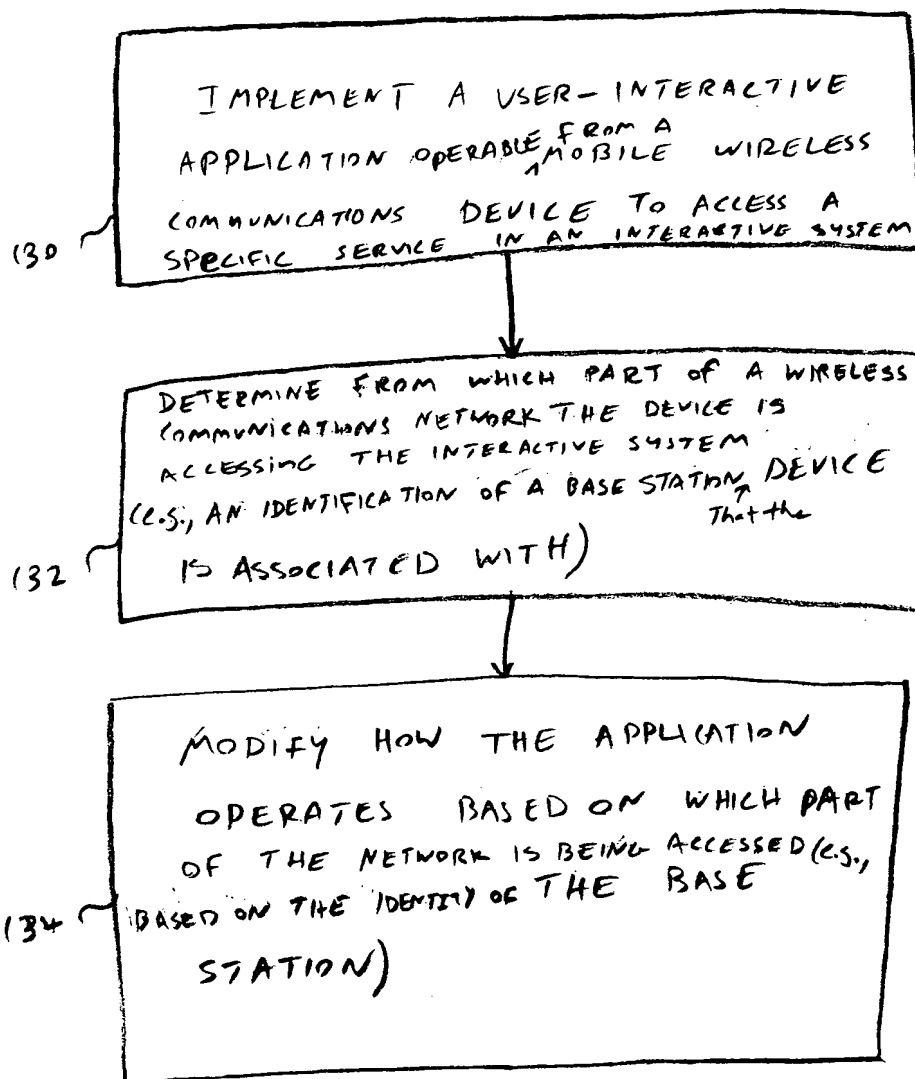 IMPLEMENT A USER-INTERACTIVE
APPLICATION OPERABLE FROM A MOBILE WIRELESS
COMMUNICATIONS DEVICE TO ACCESS A
130 SPECIFIC SERVICE IN AN INTERACTIVE SYSTEM
DETERMINE FROM WHICH PART OF A WIRELESS
COMMUNICATIONS NETWORK THE DEVICE IS
ACCESSING THE INTERACTIVE SYSTEM
(e.g., AN IDENTIFICATION OF A BASE STATION That the DEVICE
132 IS ASSOCIATED WITH)
MODIFY HOW THE APPLICATION
OPERATES BASED ON WHICH PART
OF THE NETWORK IS BEING ACCESSED (e.g.,
134 BASED ON THE IDENTITY OF THE BASE
STATION)